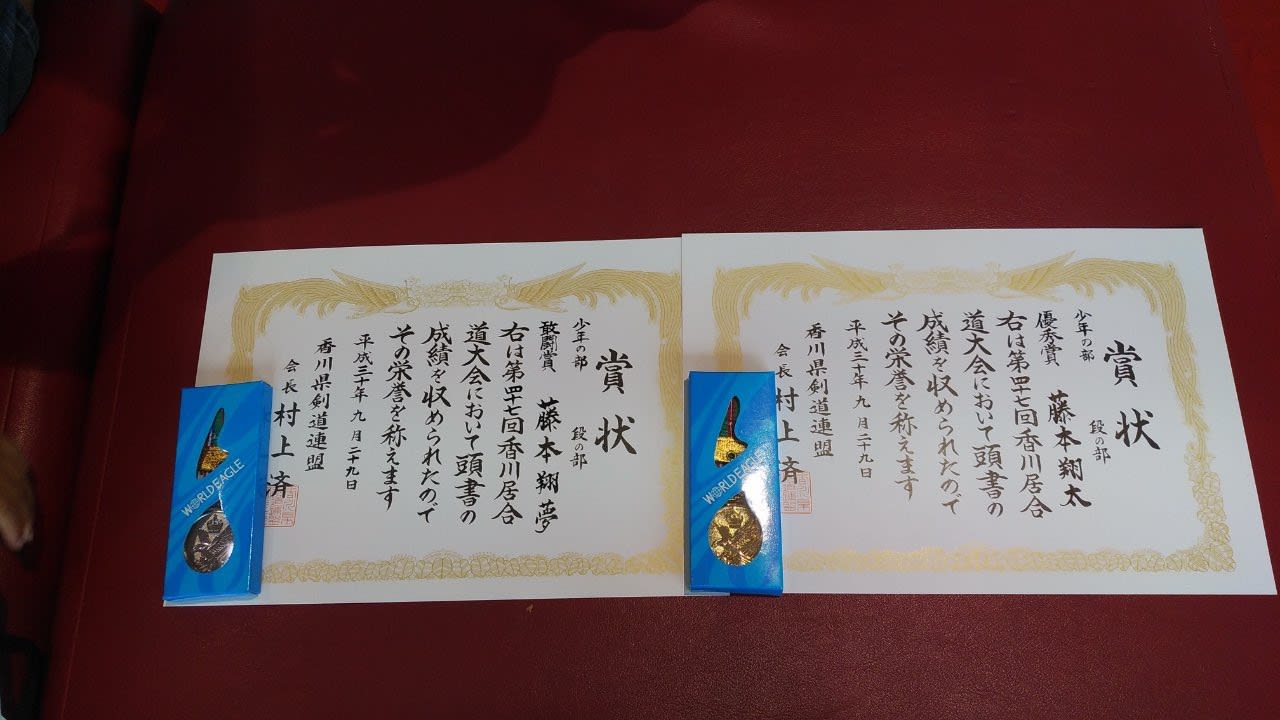 賞状
少年の部 段の部
優秀賞 藤本翔太
右は第四十七回香川居合
道大会において頭書の
成績を収められたので
その栄誉を称えます
平成三十年九月二十九日
香川県剣道連盟
会長 村上 済
WORLD EAGLE
賞状
少年の部 段の部
敢闘賞 藤本翔夢
右は第四十七回香川居合
道大会において頭書の
成績を収められたので
その栄誉を称えます
平成三十年九月二十九日
香川県剣道連盟
会長 村上 済
WORLD EAGLE